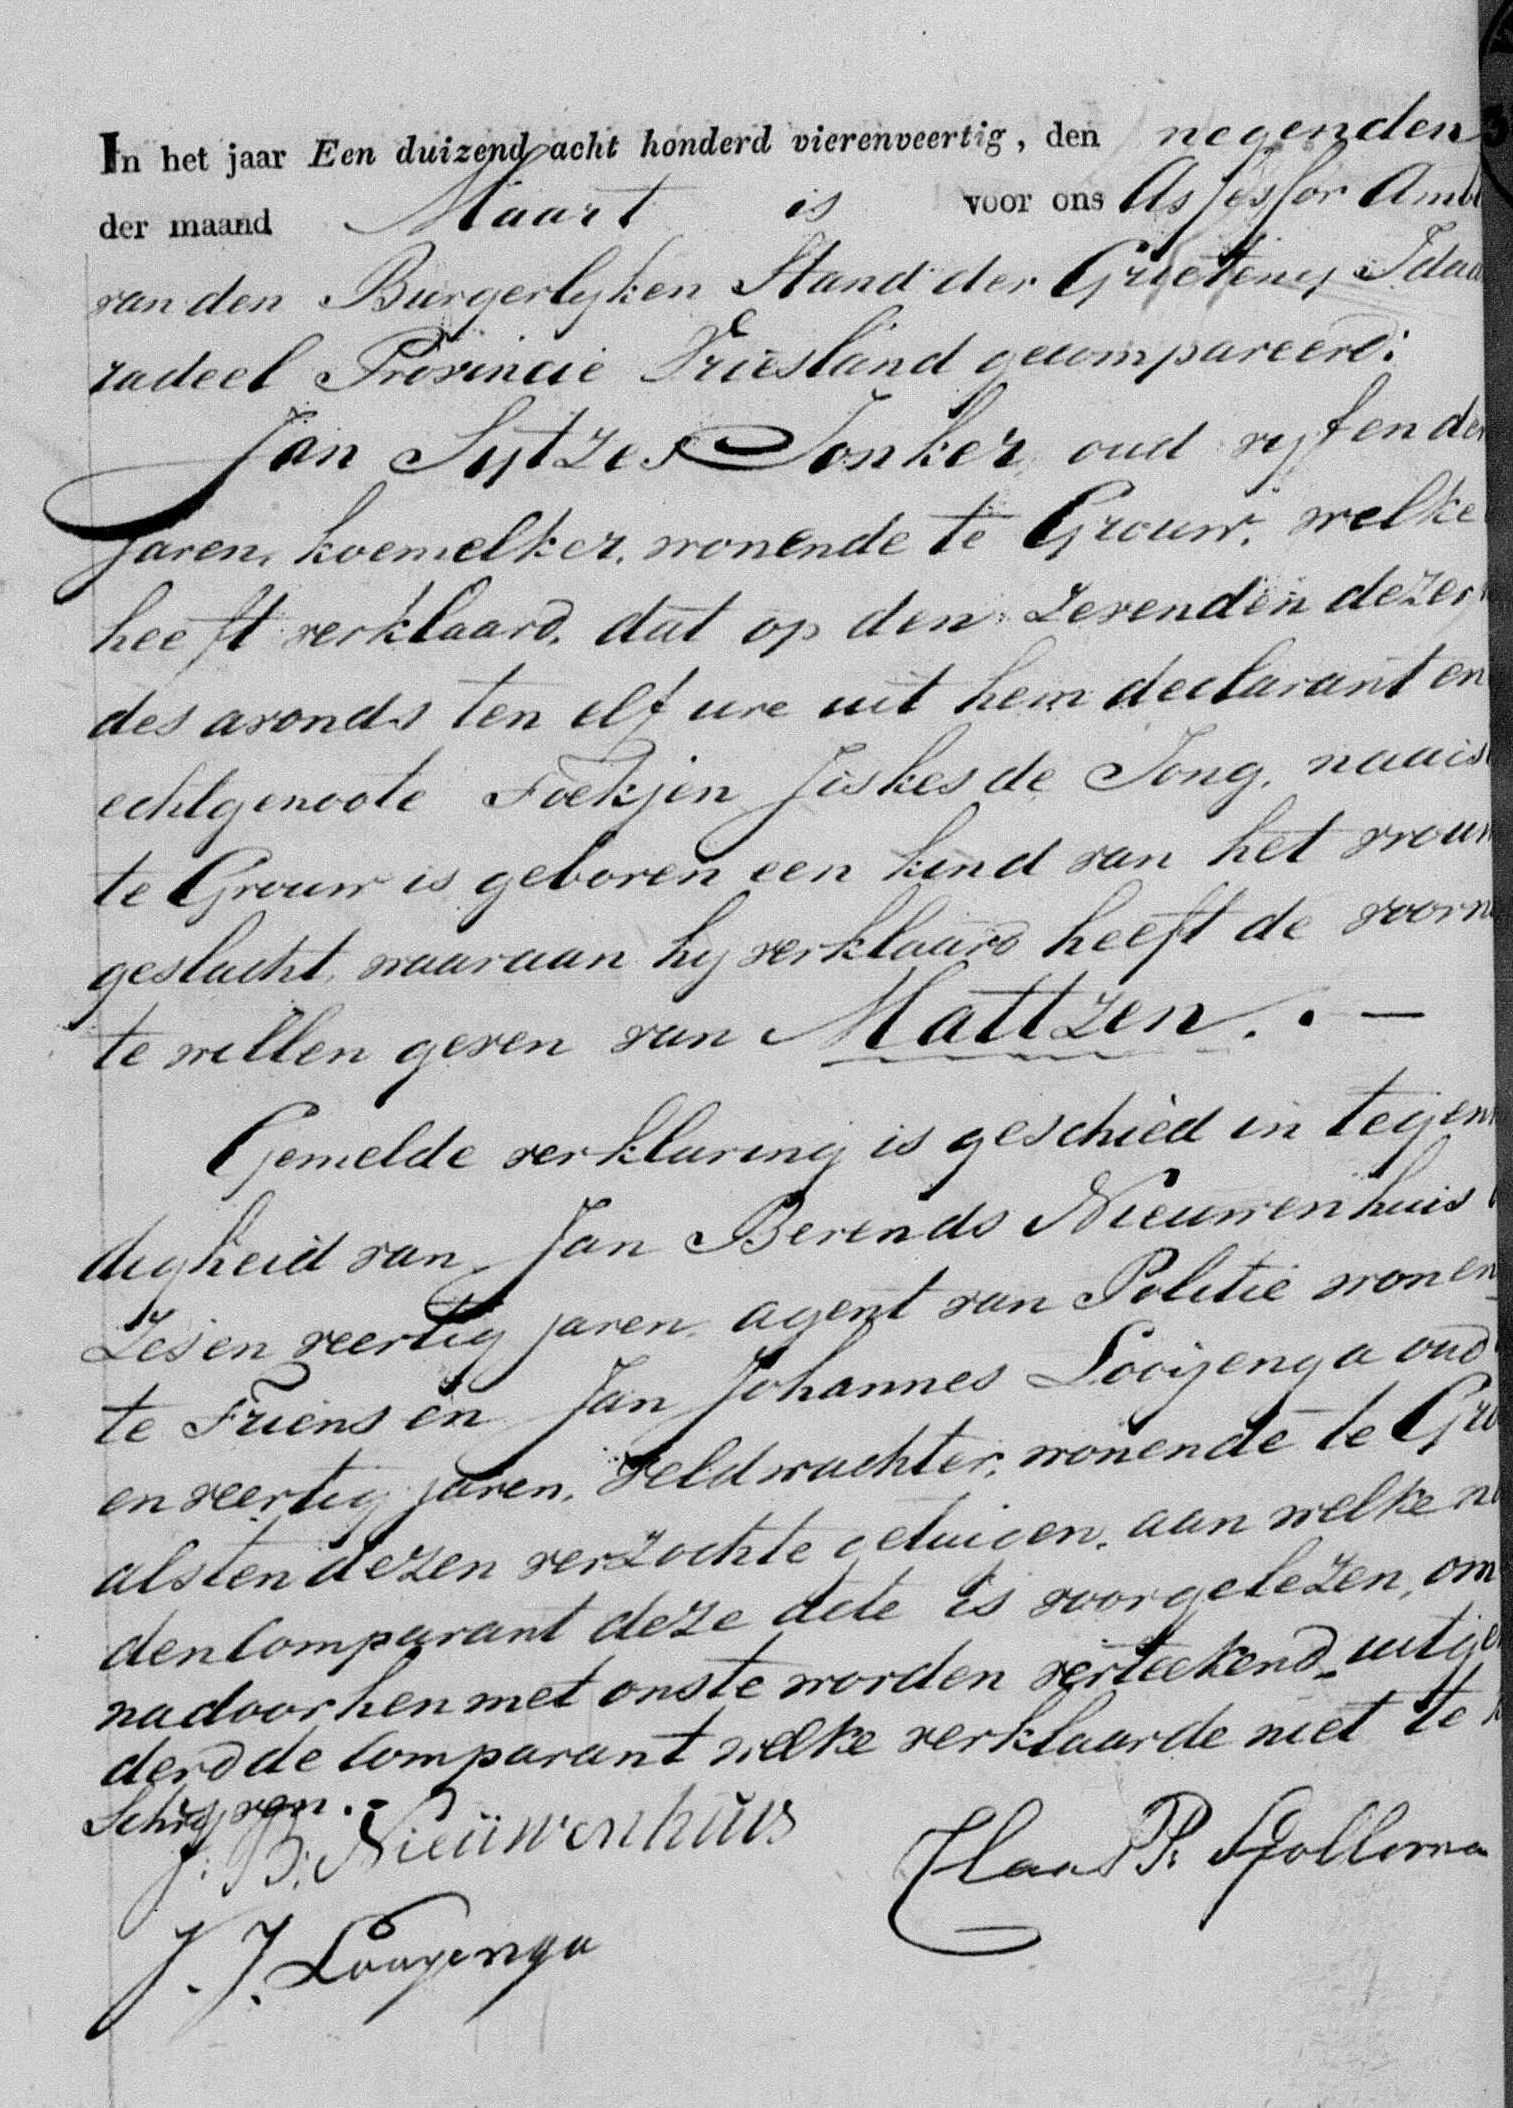 In het jaar Een duizend acht honderd vierenveertig, den negenden
der maand Maart is voor ons Assessor Amb
van den Burgerlyken Stand der Grieteny Idaa
radeel Provincie Friesland gecompareerd:
Jan Sytzes Jonker, oud vyf en der
jaren, koemelker, wonende te Grouw, welke
heeft verklaard, dat op den zevenden dezer
des avonds ten elf ure uit hem declarant en
echtgenoote Foekjen Jiskes de Jong, naais
te Grouw is geboren een kind van het vrouw
geslacht, waaraan hy verklaard heeft de voorn
te willen geven van Mattzen. . —
Gemelde verklaring is geschied in tegen
digheid van Jan Berends Nieuwenhuis
Zes en veertig jaren, agent van Politie wonen
te Friens en Jan Johannes Looijenga oud
en veertig jaren, veldwachter, wonende te Gro
als ten dezen verzochte getuigen, aan welke n
den Comparant deze acte is voorgelezen, om
na door hen met ons te worden verteekend, uitge
derd de Comparant welke verklaarde niet te
Schryven.-
J: B: Nieüwenhüis
J. J. Looyenga